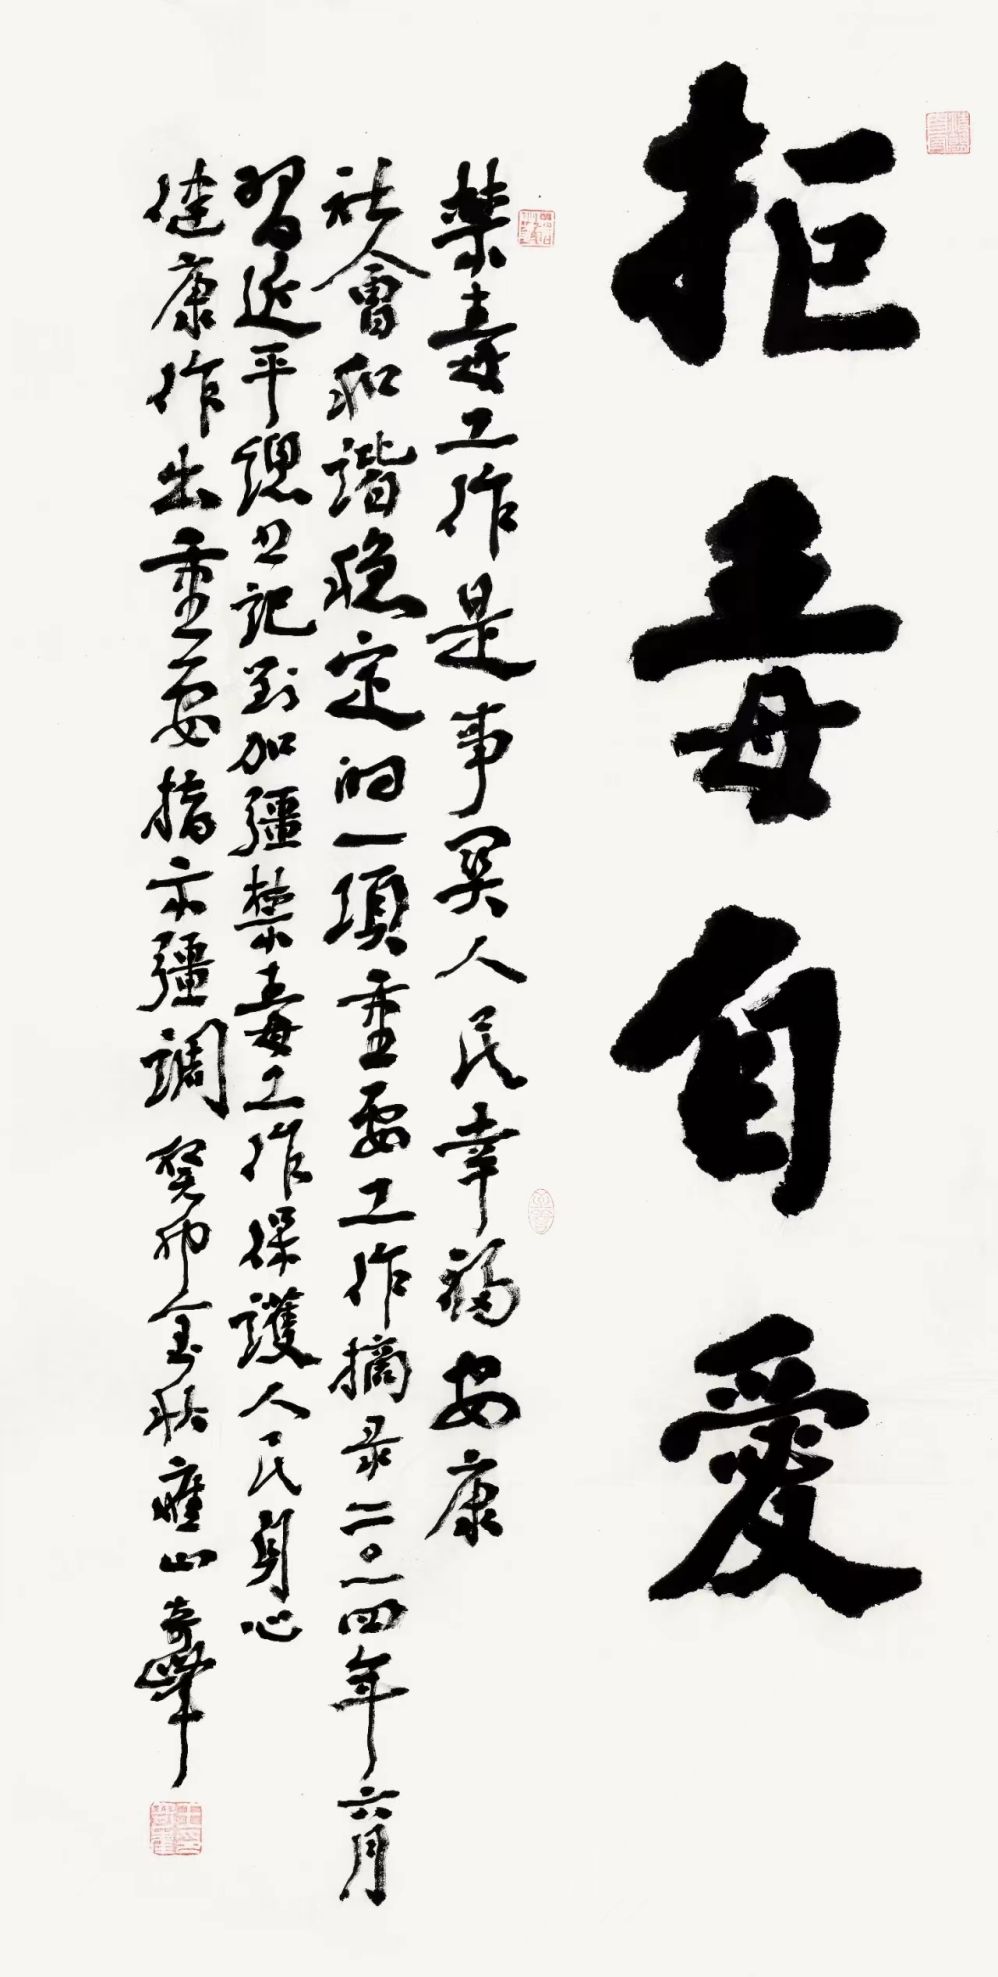 拒毒自愛
禁毒工作是事関人民幸福安康
社會和諧稳定的一項重要工作摘录二〇一四年六月
習近平總书記對加彊禁毒工作保護人民身心
健康作出重要指示彊調 癸卯金秋雁山奇峰